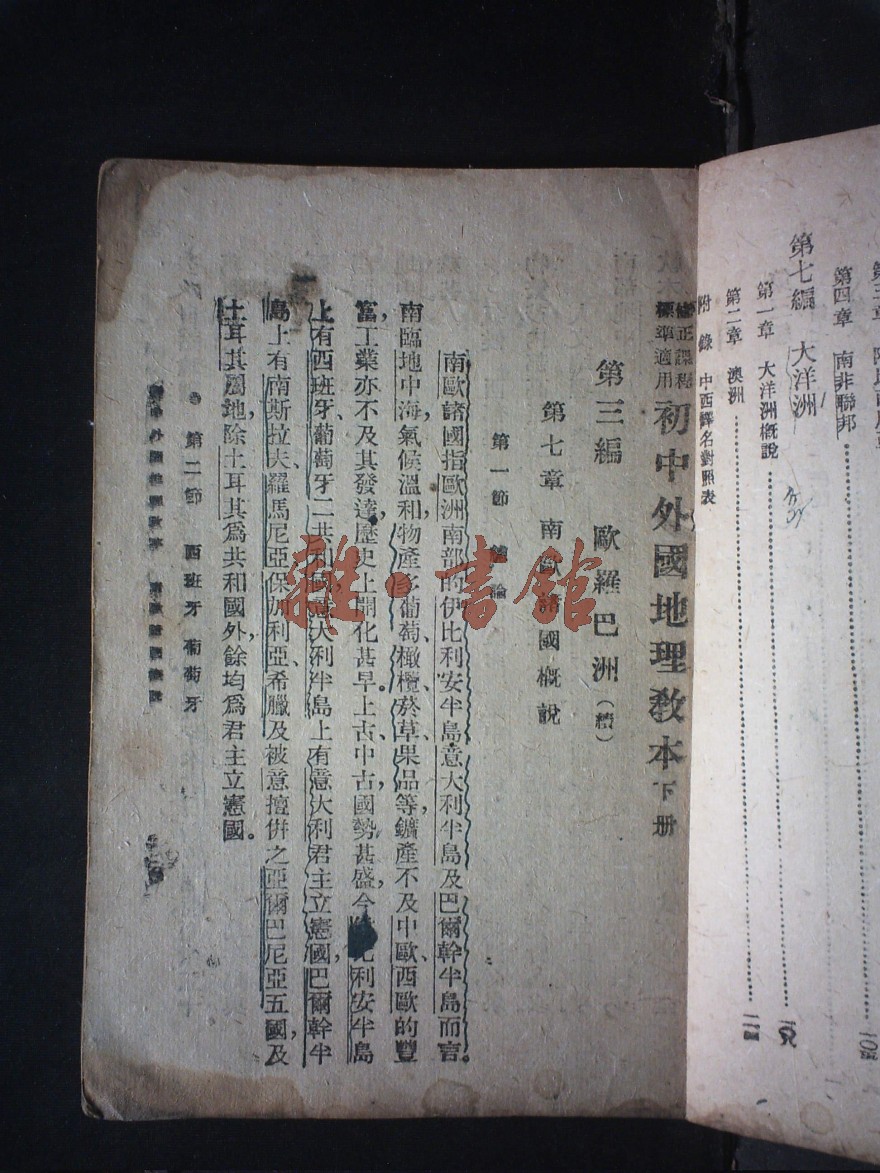 第四章　南非聯邦
第七編　大洋洲
第一章　大洋洲概說
第二章　澳洲
附錄　中西譯名對照表
修正課程標準適用
初中外國地理教本下册
第三編　歐羅巴洲（續）
第七章　南歐諸國概說
第一節　總論
南歐諸國指歐洲南部的伊比利安半島、意大利半島及巴爾幹半島而言。
南臨地中海，氣候溫和，物產多葡萄、橄欖、菸草、果品等，鑛產不及中歐、西歐的豐
富，工業亦不及其發達，歷史上開化甚早，上古、中古國勢甚盛，今比利安半島
上有西班牙、葡萄牙二共和國，意大利半島上有意大利君主立憲國，巴爾幹半
島上有南斯拉夫、羅馬尼亞、保加利亞、希臘及被意擅併之亞爾巴尼亞五國，及
土耳其屬地，除土耳其爲共和國外，餘均爲君主立憲國。
第二節　西班牙　葡萄牙
雜·書館